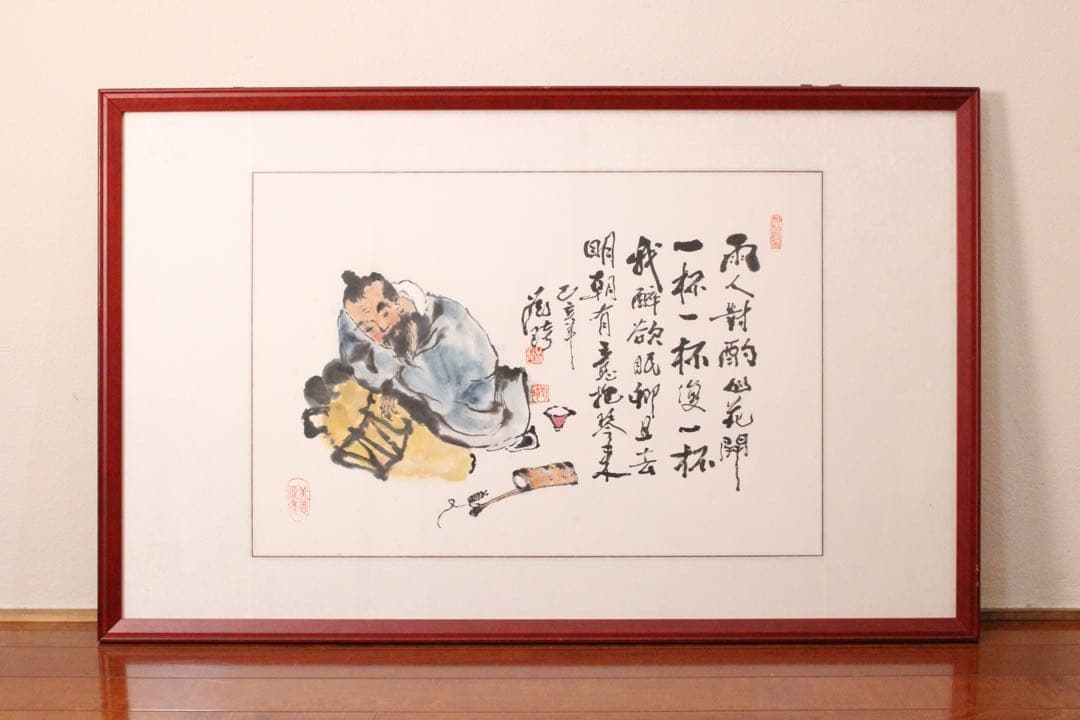 兩人對酌山花開
一杯一杯復一杯
我醉欲眠卿且去
明朝有意抱琴來
己亥年